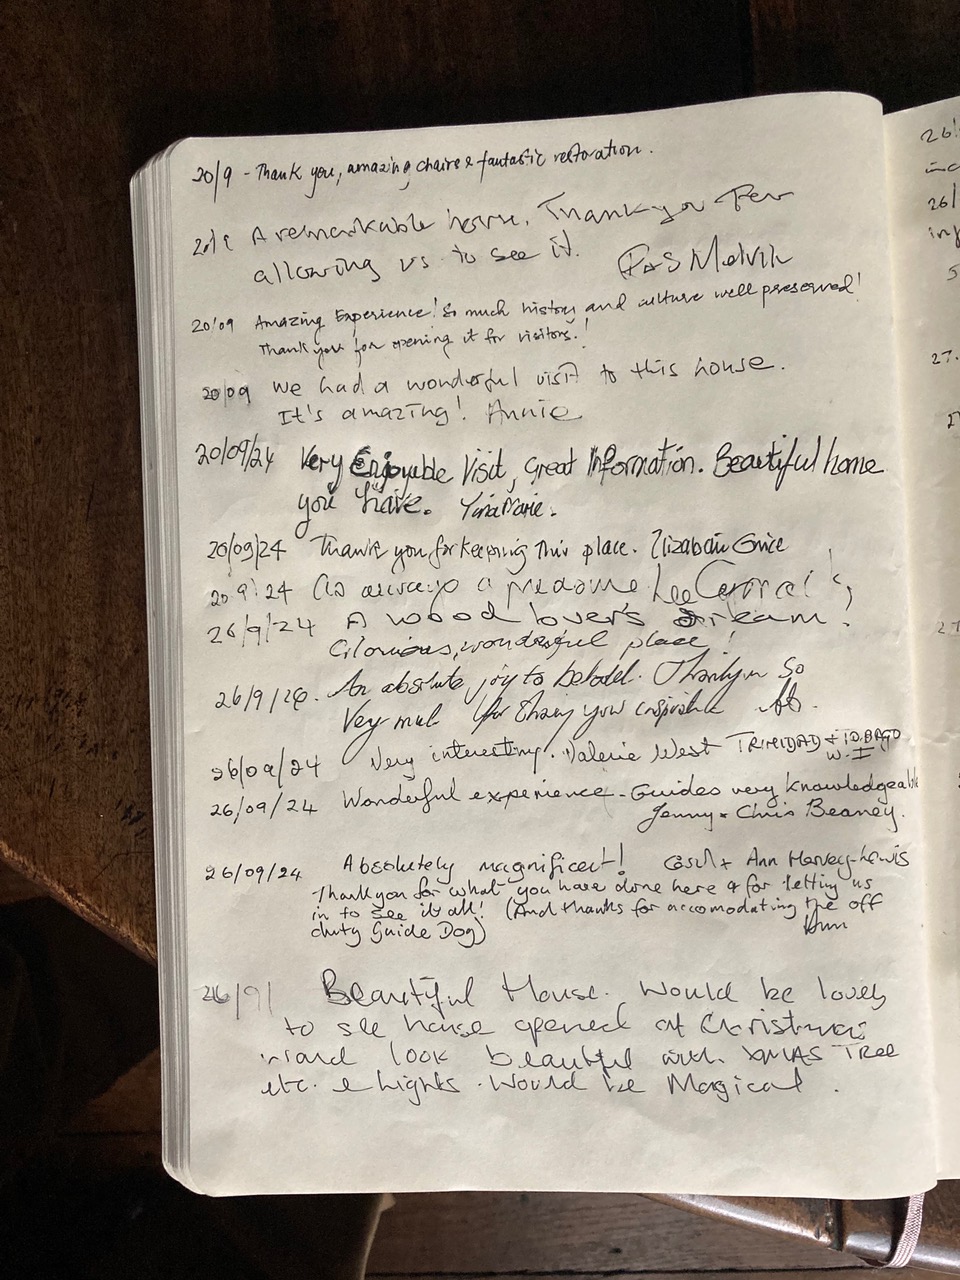 20/9 - Thank you, amazing chairs & fantastic restoration.
A remarkable house. Thank you for
allowing us to see it.
20/09 Amazing Experience! So much history and culture well preserved!
Thank you for opening it for visitors!
20/09 We had a wonderful visit to this house.
It's amazing! Annie
20/09/24 Very Enjoyable Visit, Great Information. Beautiful home
you have.
20/09/24 Thank you for keeping this place.
20 9 24 As always a
26/9/24 A wood lover's dream!
Glorious, wonderful place!
26/9/ An absolute joy to behold. Thank you so
very much for
26/09/24 Very interesting. Valerie West TRINIDAD & TOBAGO
W.I
26/09/24 Wonderful experience - Guides very knowledgeable
Jenny & Chris Beaney.
26/09/24 Absolutely magnificent! & Ann Harvey-Lewis
Thank you for what you have done here & for letting us
in to see it all! (And thanks for accomodating the off
duty Guide Dog) Ann
26/9/ Beautiful House. Would be lovely
to see house opened at Christmas
would look beautiful with XMAS TREE
etc. & Lights. Would be Magical.
26/
26/
27.